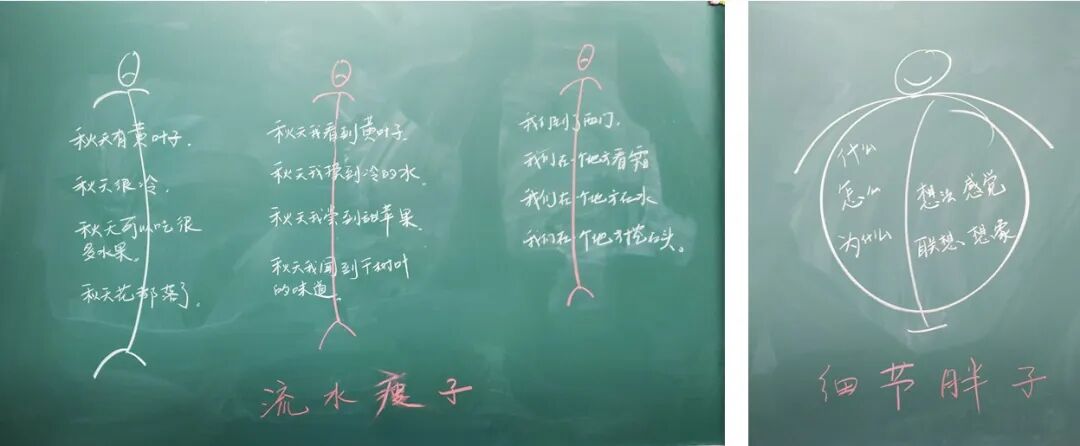 秋天有黄叶子.
秋天很冷.
秋天可以吃很
多水果。
秋天花都落了.
秋天我看到黄叶子.
秋天我摸到冷的水.
秋天我尝到甜苹果.
秋天我闻到干树叶
的味道。
我们到了西门.
我们在一个地方看霜
我们在一个地方石水
我们在一个地方挖石头。
流水瘦子
什么
怎么
为什么
想法 感觉
联想、想象
细节胖子